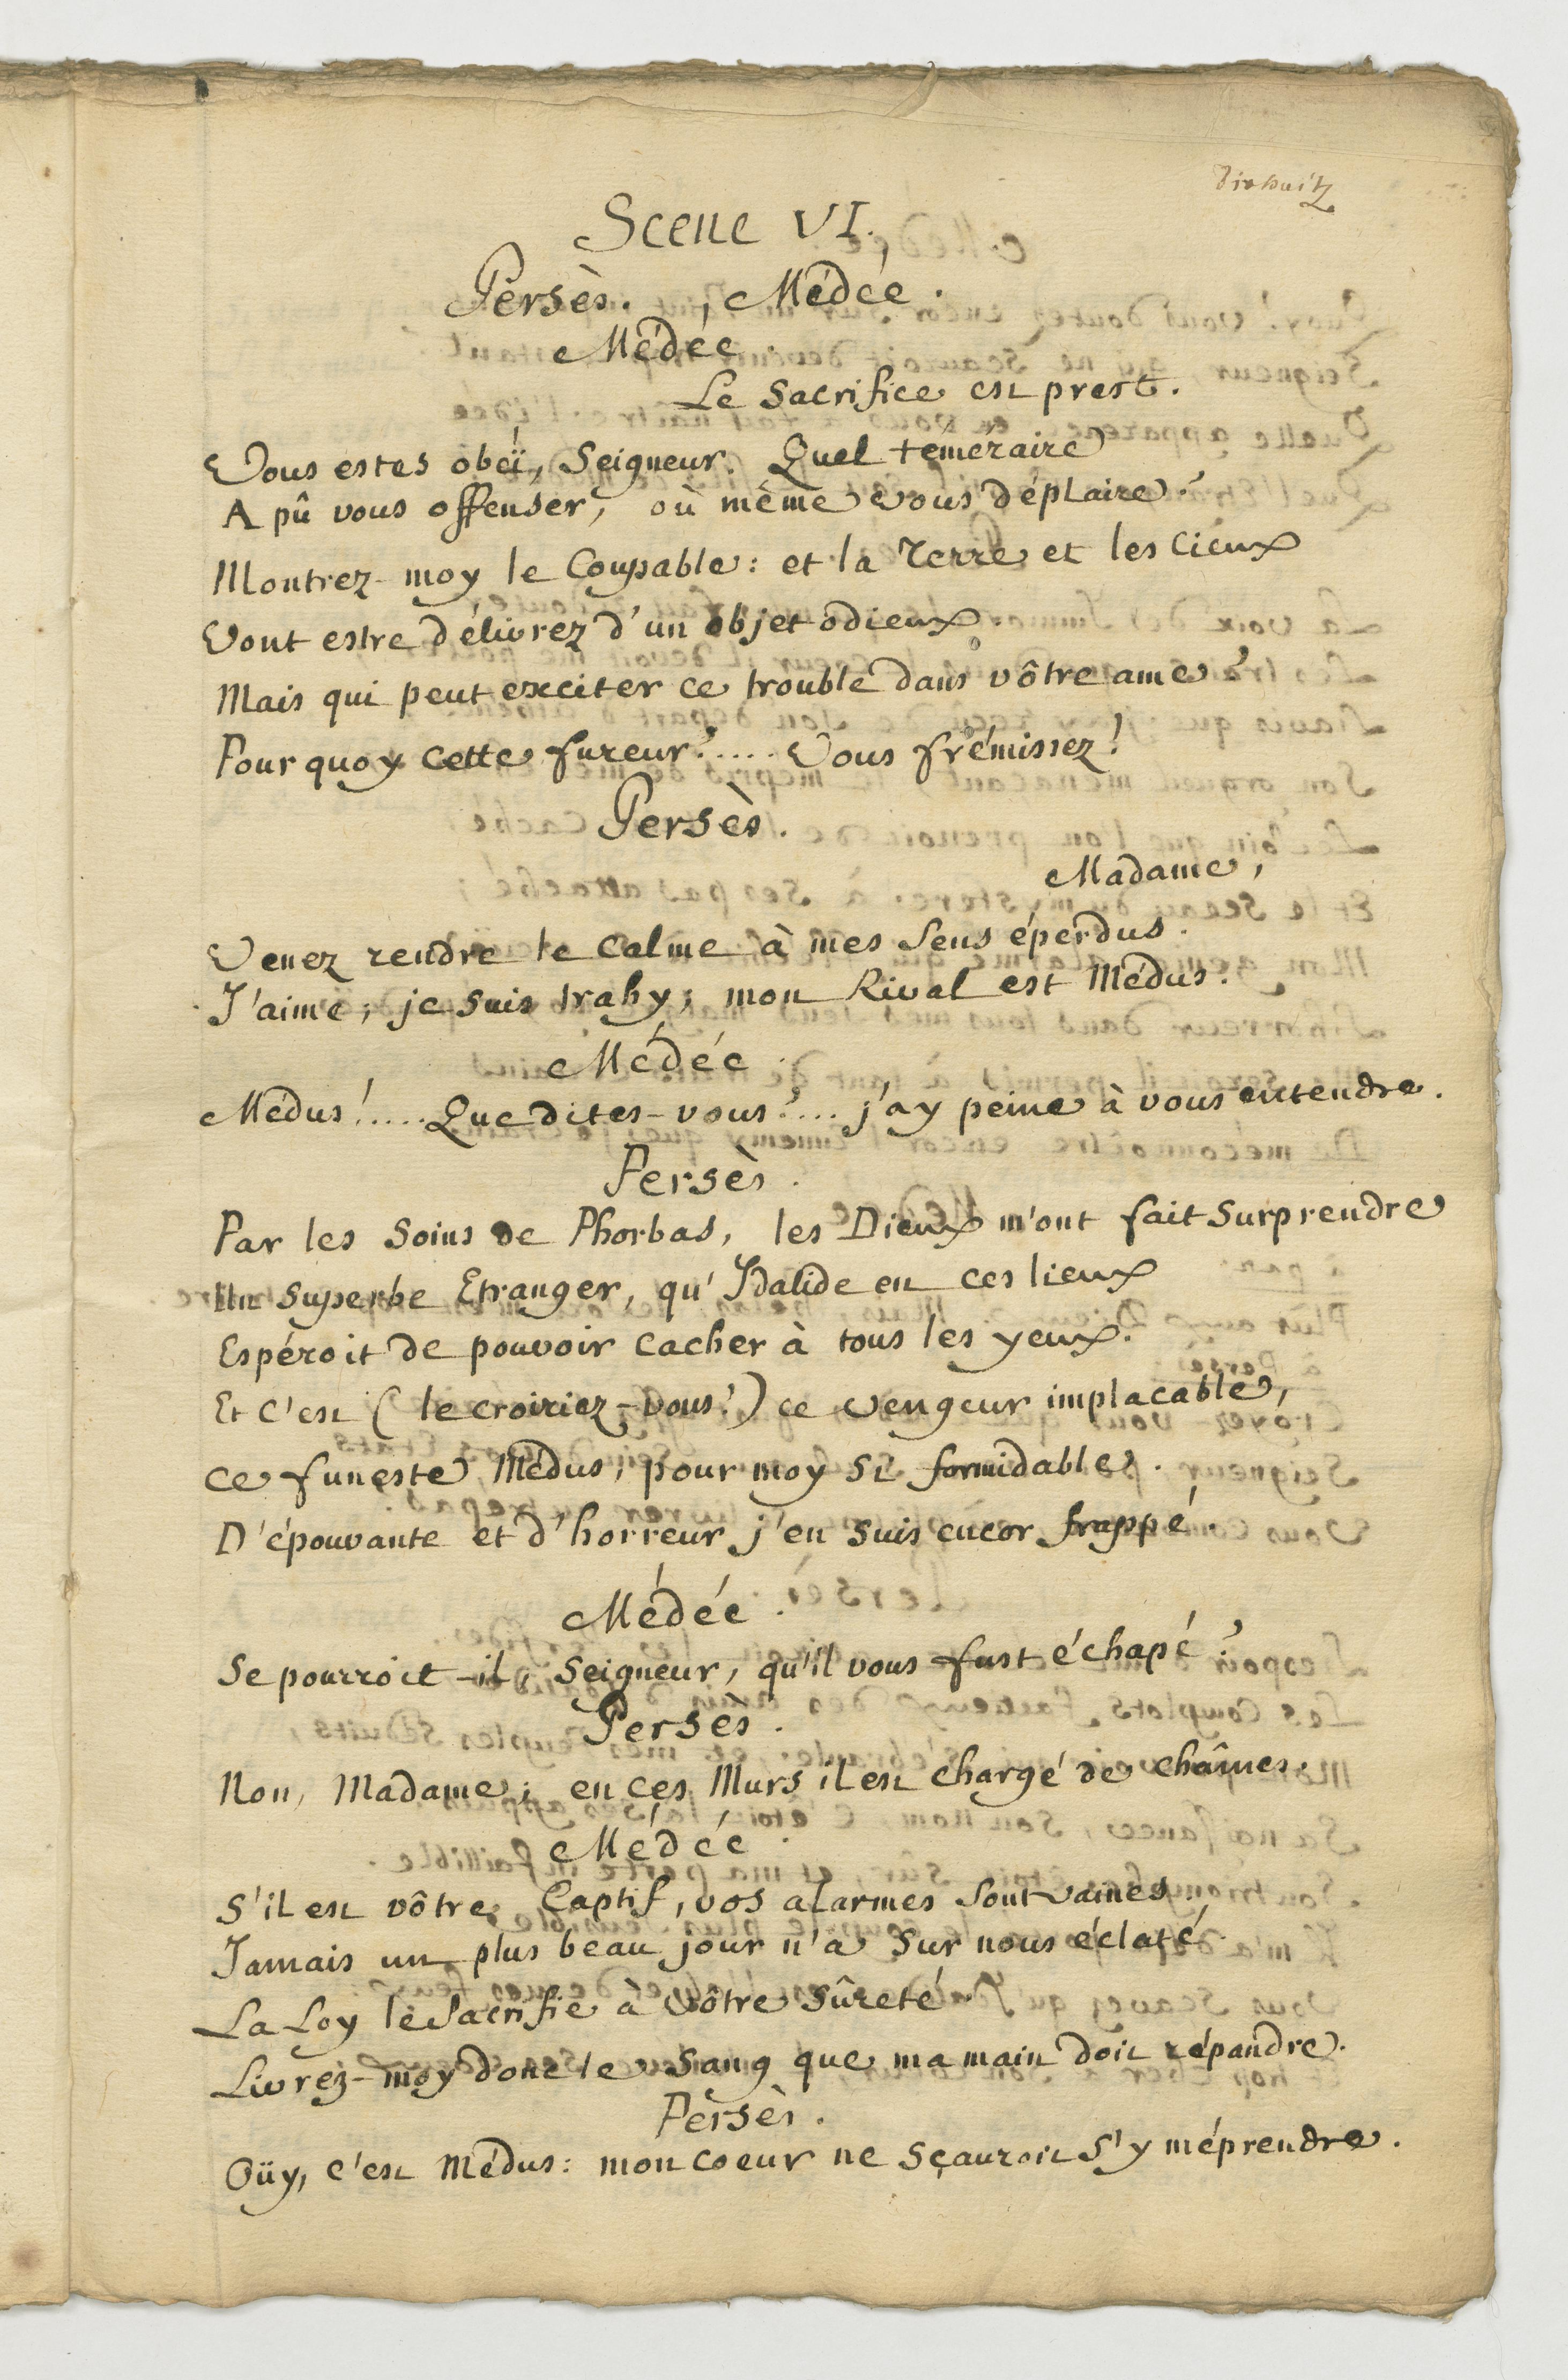 Scene VI.
Persès. , Médée.
Médée
Le Sacrifice est prest.
Vous estes obéï, Seigneur. Quel téméraire
A pû vous offenser, où même vous déplaire?
Montrez-moy le Coupable: et la Terre et les Cieux
Vont estre délivrez d'un objet odieux.
Mais qui peut exciter ce trouble dans vôtre ame?
Pourquoy cette fureur?..... Vous frémissez!
Persès.
Madame,
Venez rendre le calme à mes Sens éperdus.
J'aime; je suis trahy; mon Rival est Médus.
Médée.
Médus!..... Que dites-vous?.... j'ay peine à vous entendre.
Persès.
Par les Soins de Phorbas, les Dieux m'ont fait surprendre
Un Superbe Etranger, qu'Idalide en ces lieux
Espéroit de pouvoir cacher à tous les yeux.
Et c'est (le croiriez-vous?) ce vengeur implacable,
Ce funeste Médus, pour moy si formidable.
D'épouvante et d'horreur j'en suis encor frappé
Médée.
Se pourroit-il, Seigneur, qu'il vous fust échapé?
Persès.
Non, Madame; en ces Murs il est chargé de chaînes.
Médée.
S'il est vôtre Captif, vos alarmes sont vaines.
Jamais un plus beau jour n'a sur nous éclaté.
La Loy le Sacrifie à vôtre sûreté.
Livrez-moy donc le Sang que ma main doit répandre.
Persès.
Oüy, c'est Médus: mon coeur ne sçauroit s'y méprendre.